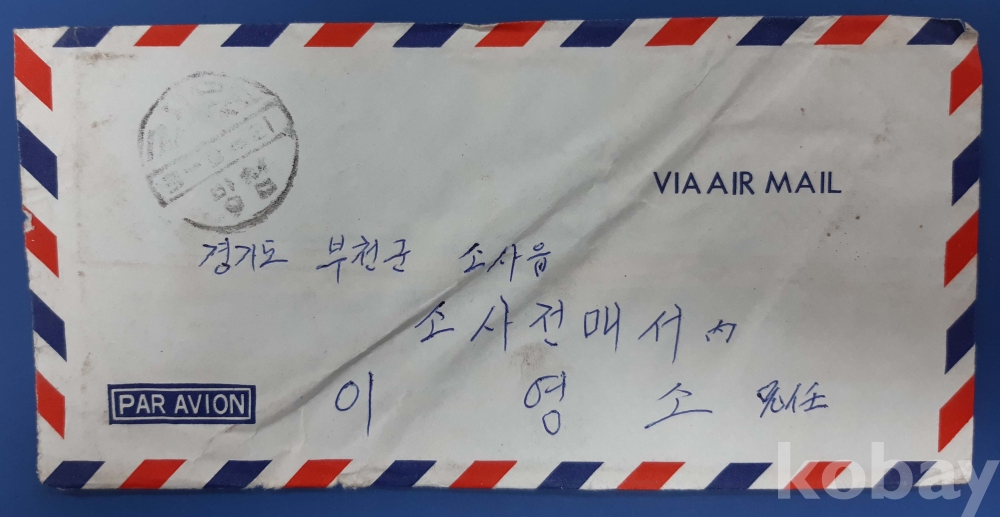 VIA AIR MAIL
경기도 부천군 소사읍
소사전매서 内
이 영 소
PAR AVION
kobay